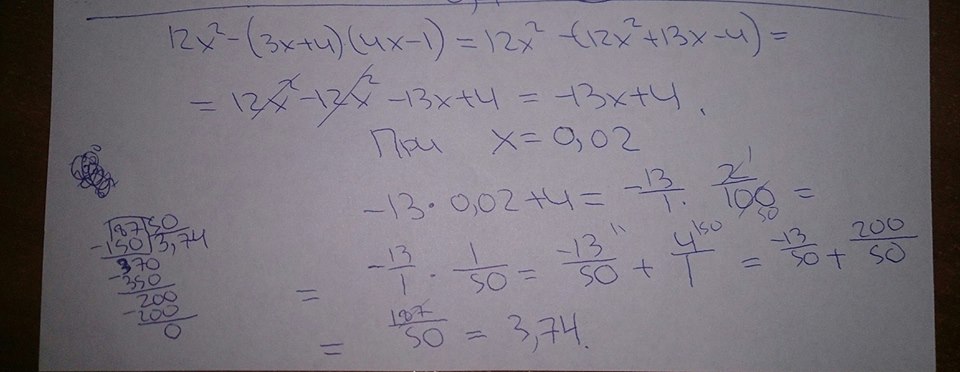 12x² - (3x+4)(4x-1) = 12x² -(12x²+13x-4) =
= 12x² - 12x² - 13x+4 = -13x+4.
При x = 0,02
-13 · 0,02 + 4 = -13/1 · 2¹/100 50 =
= -13/1 · 1/50 = -13/50 + 4/1 50 = -13/50 + 200/50
= 187/50 = 3,74.
187 50
-150 3,74
370
-350
-200
200
0